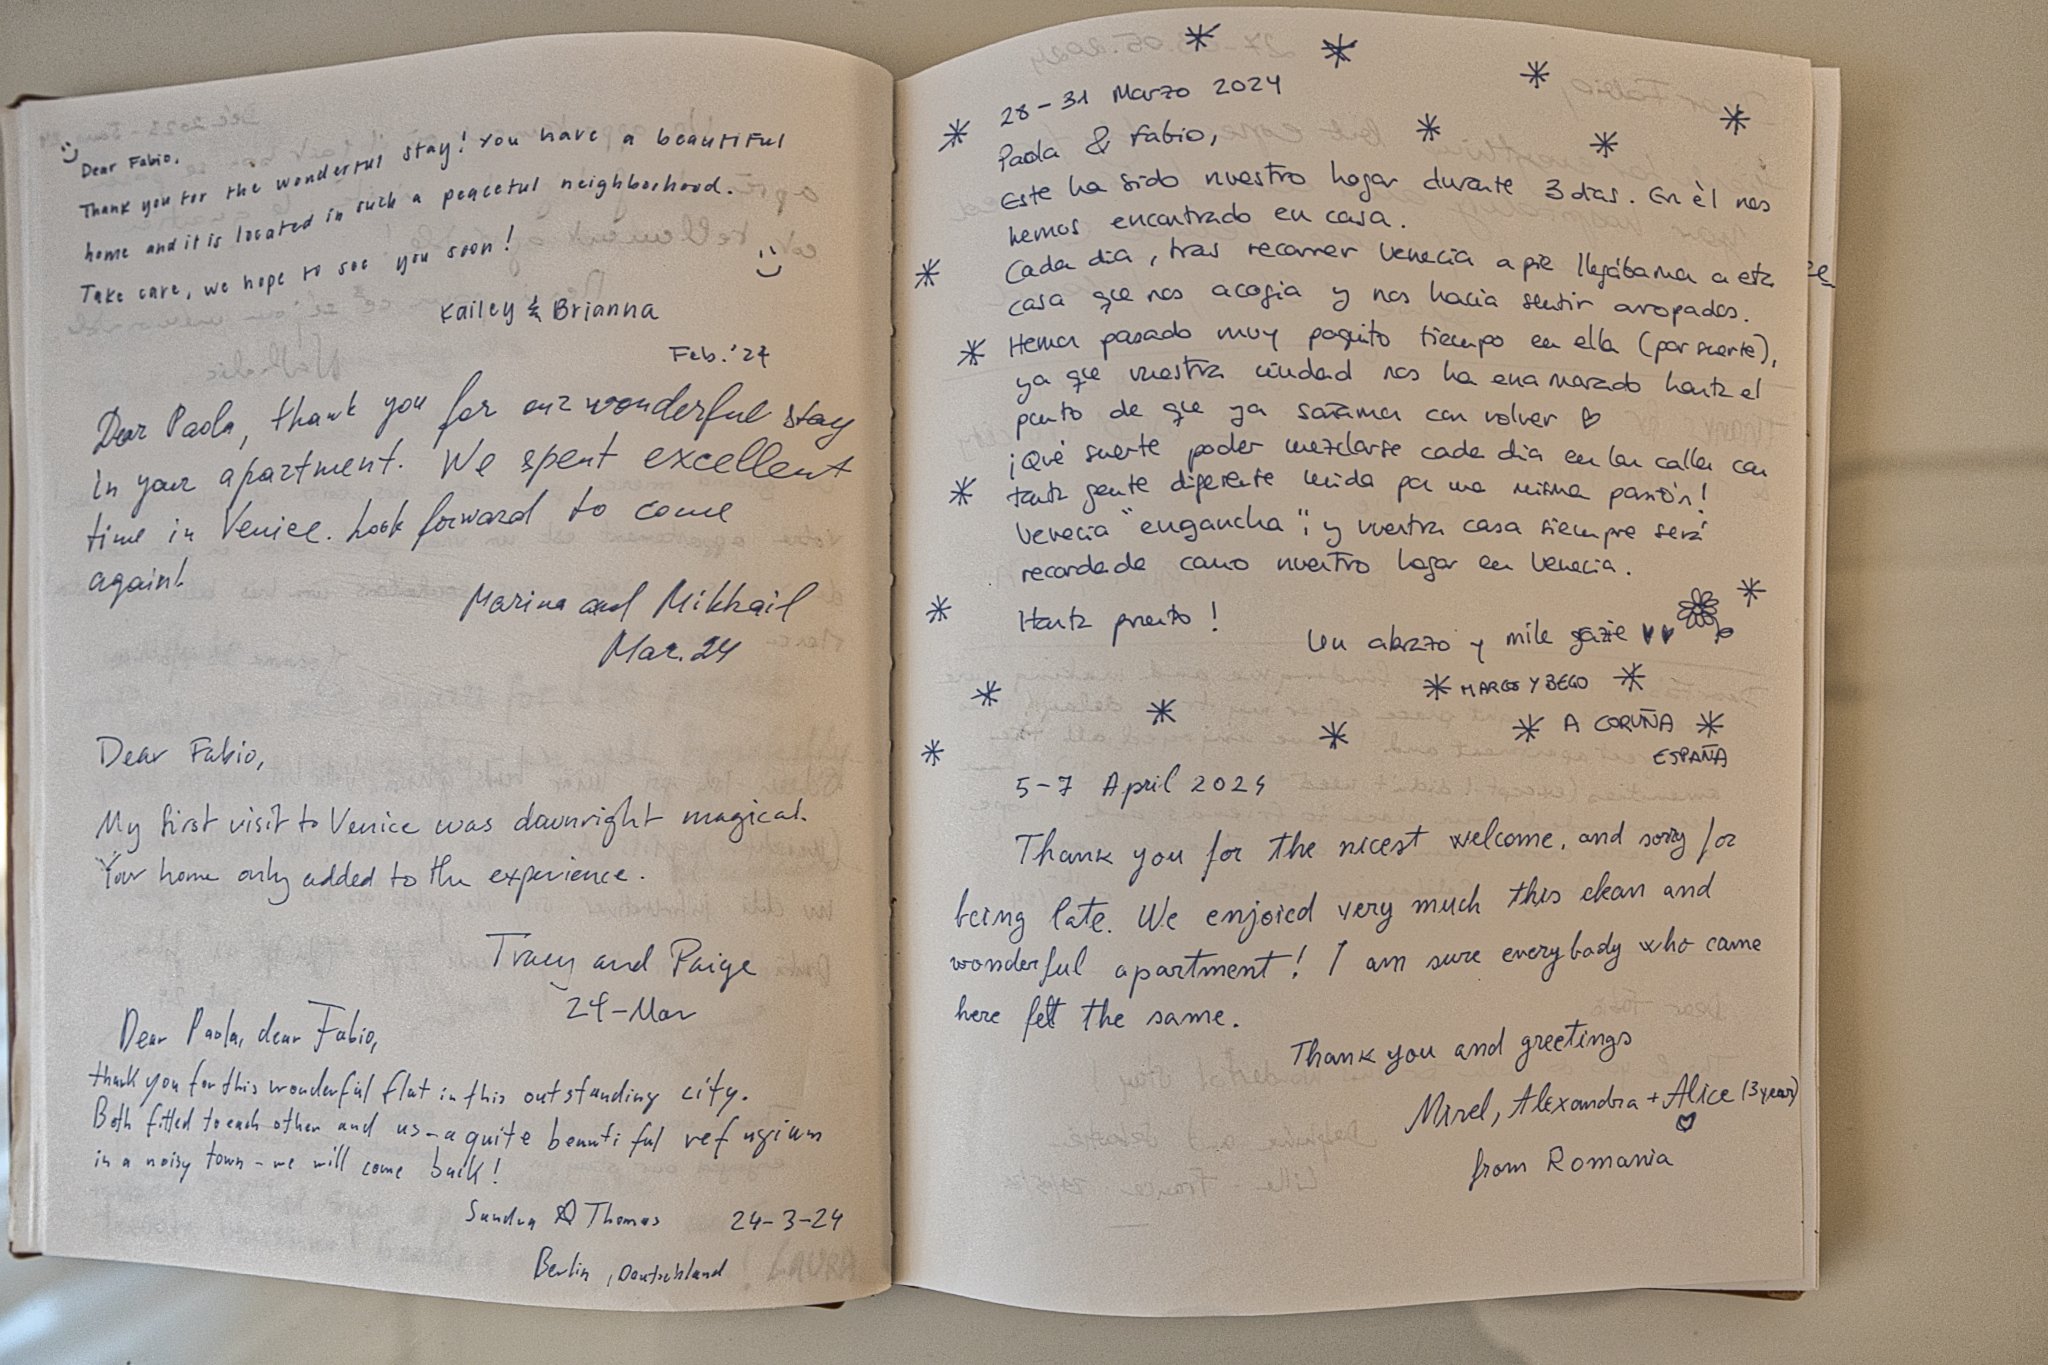 Dear Fabio,
Thank you for the wonderful stay! You have a beautiful
home and it is located in such a peaceful neighborhood.
Take care, we hope to see you soon!
Kailey & Brianna
Feb. '24
Dear Paola, thank you for our wonderful stay
in your apartment. We spent excellent
time in Venice. Look forward to come
again!
Marina and Mikhail
Mar. 24
Dear Fabio,
My first visit to Venice was downright magical.
Your home only added to the experience.
Tracy and Paige
24-Mar
Dear Paola, dear Fabio,
thank you for this wonderful flat in this outstanding city.
Both fitted to each other and us - a quite beautiful refugium
in a noisy town - we will come back!
Sandra & Thomas 24-3-24
Berlin, Deutschland
28-31 Marzo 2024
Paola & Fabio,
Este ha sido nuestro hogar durante 3 dias. En èl nos
hemos encontrado en casa.
Cada dia, tras recorrer Venecia a pie llegábamos a esta
casa que nos acogia y nos hacia sentir arropados.
Hemos pasado muy poquito tiempo en ella (por suerte),
ya que vuestra ciudad nos ha enamorado hasta el
punto de que ya soñamos con volver ♡
¡Qué suerte poder mezclarse cada dia en las calles con
tanta gente diferente unida por una misma pasión!
Venecia "engancha", y vuestra casa siempre será
recordada como nuestro hogar en Venecia.
Hasta pronto!
Un abrazo y mile grazie ♥♥
MARCOS Y BEGO
A CORUÑA
ESPAÑA
5-7 April 2024
Thank you for the nicest welcome, and sorry for
being late. We enjoied very much this clean and
wonderful apartment! I am sure everybody who came
here felt the same.
Thank you and greetings
Mirel, Alexandra + Alice (3 year)
♡
from Romania